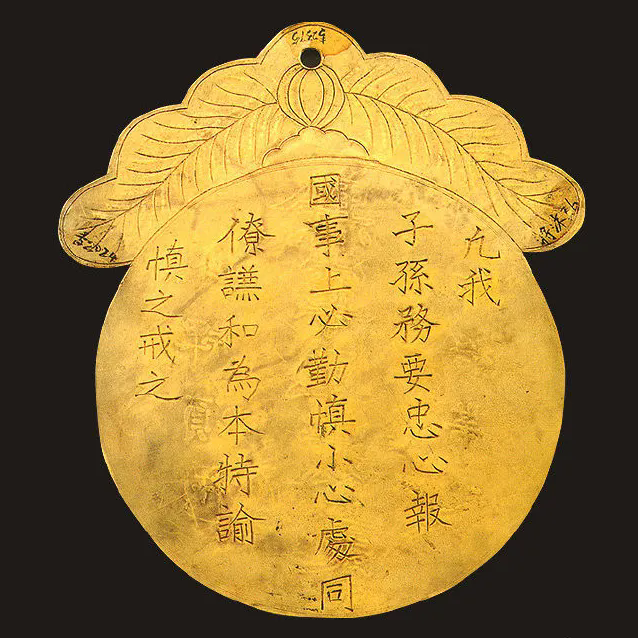 凡我
子孫務要忠心報
國事上必勤慎小心處同
僚謙和為本特諭
慎之戒之